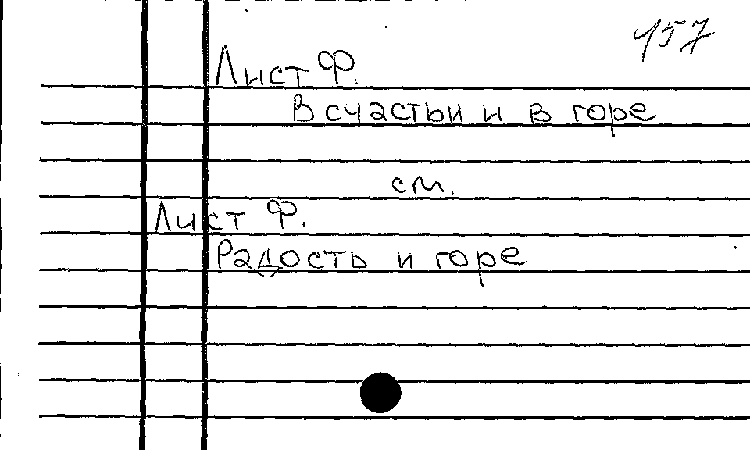 157
Лист Ф.
В счастьи и в горе
см.
Лист Ф.
Радость и горе